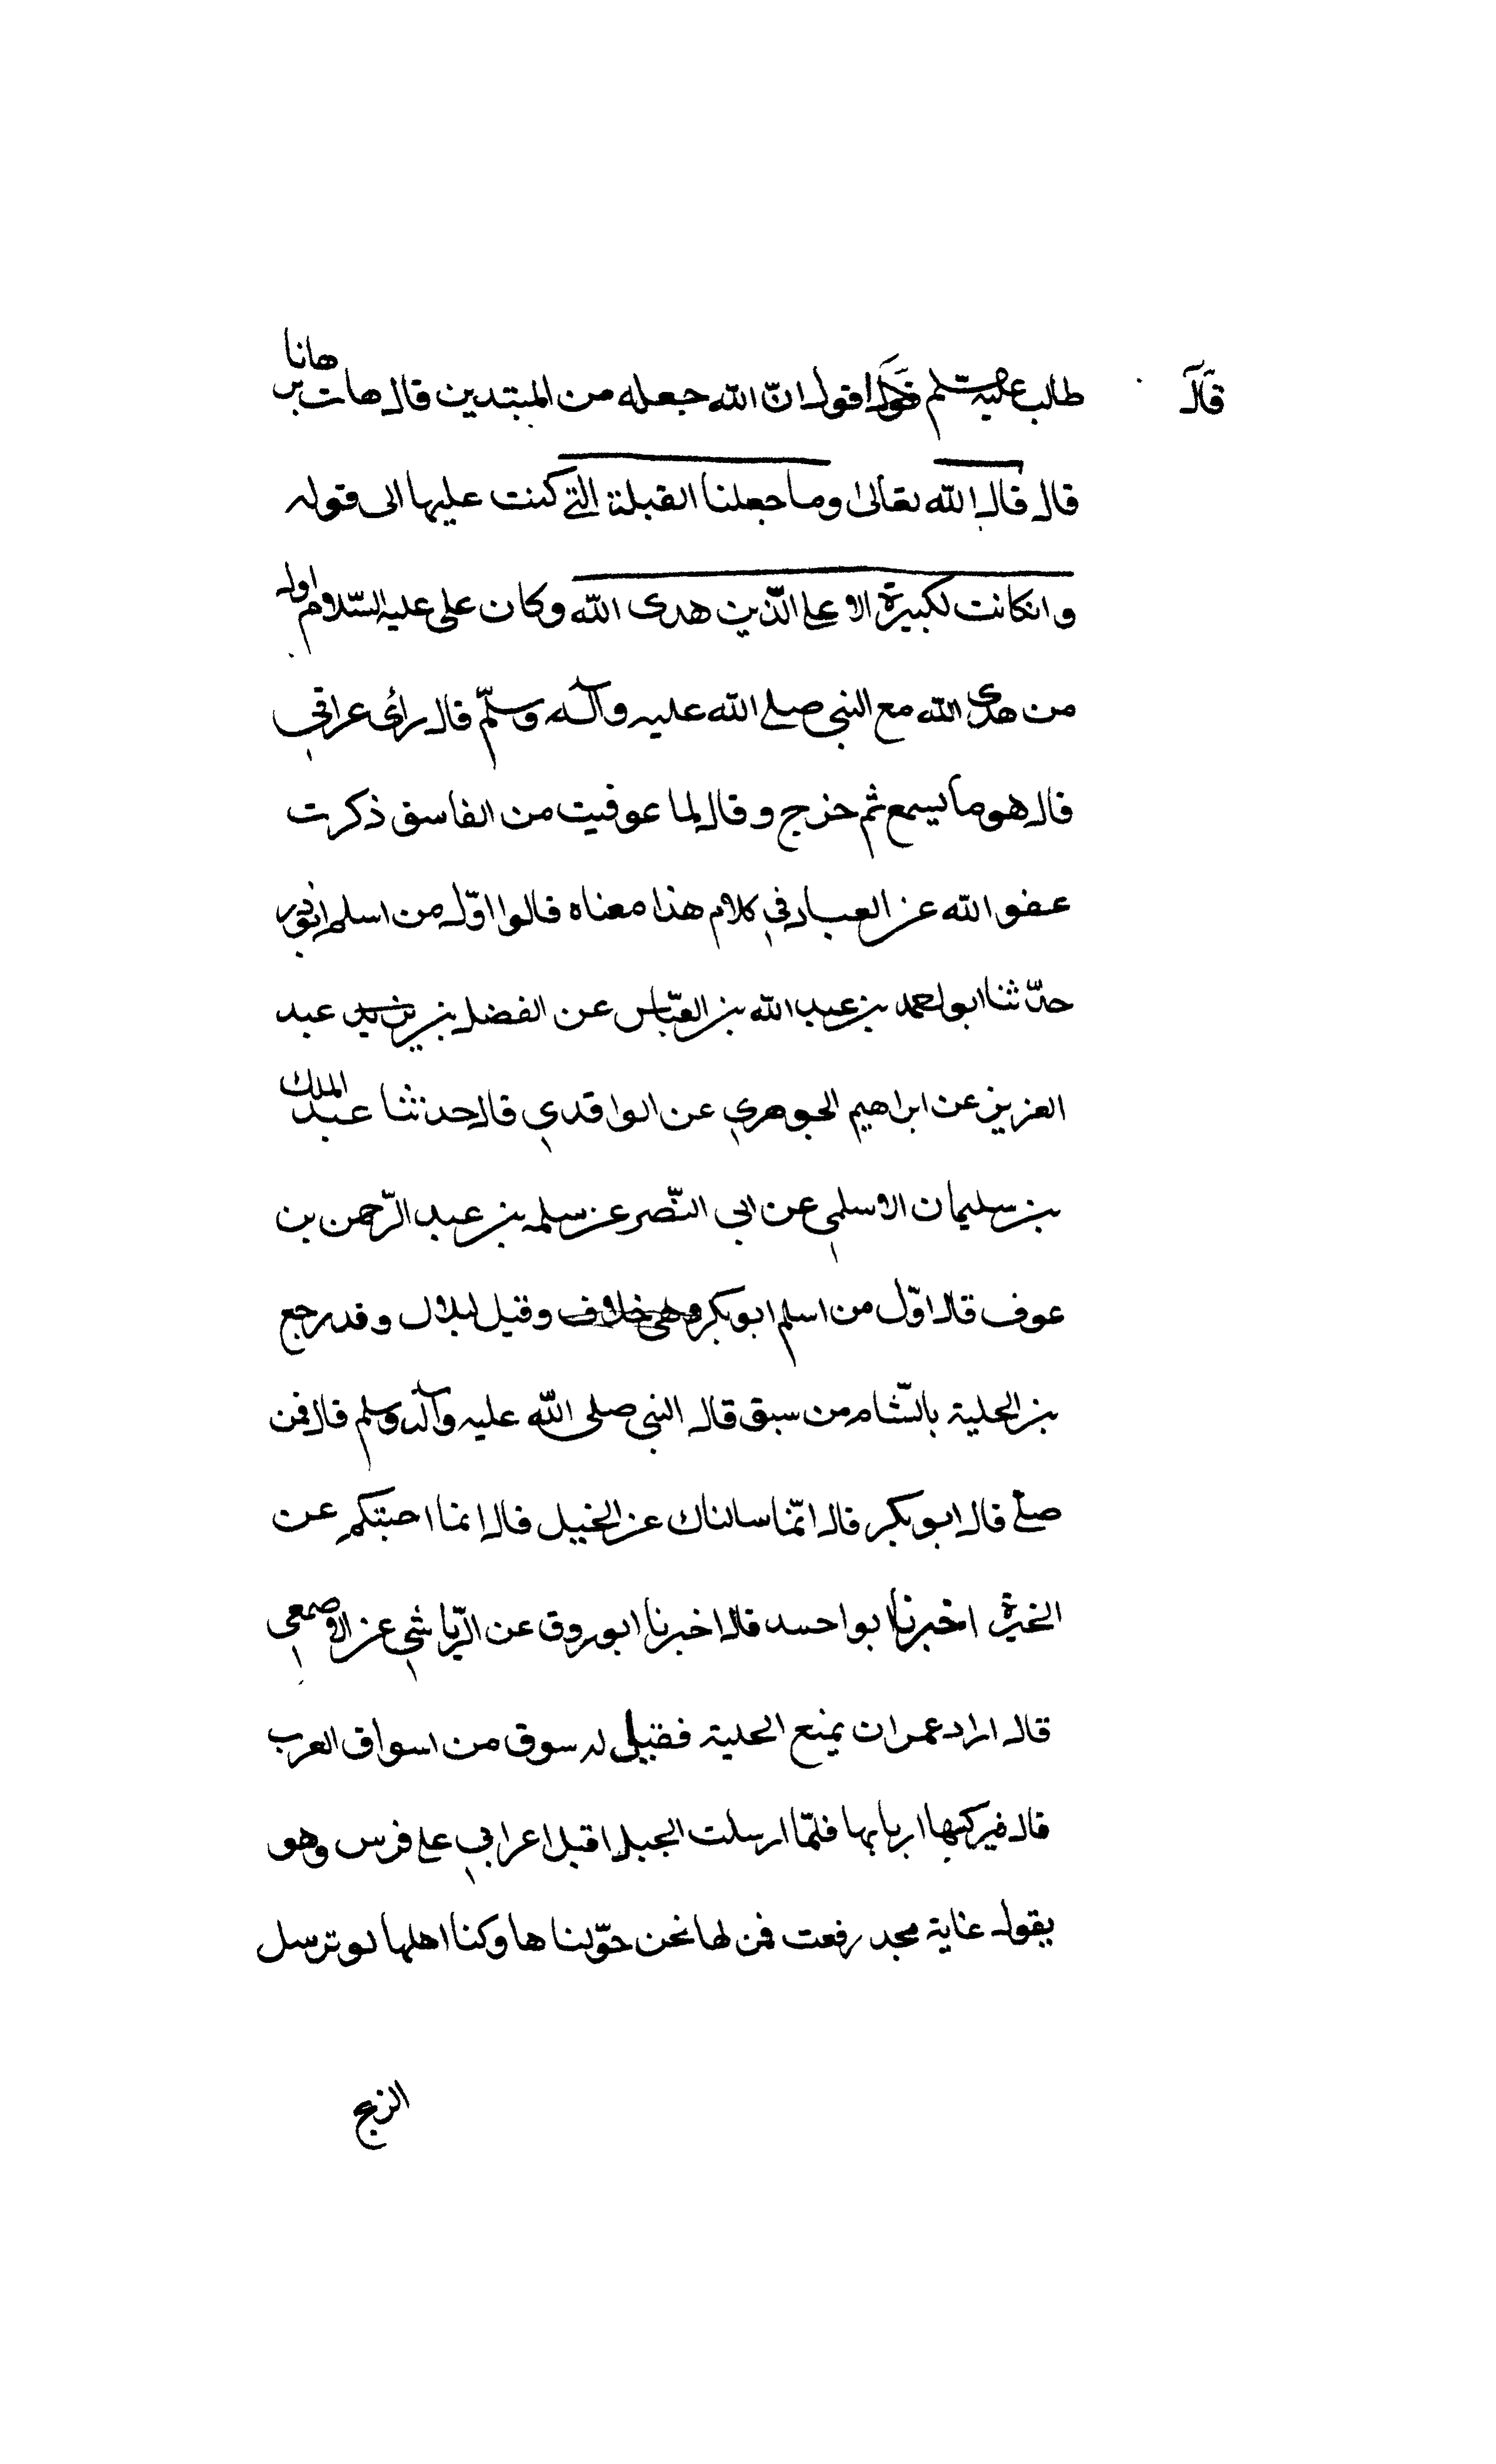 قال
طالب عليه السلم فقال اقول ان الله جعله من المبتدين قال هات برهانا
قال قال الله تعالى وما جعلنا القبلة التي كنت عليها الى قوله
وانكانت لكبيرة الا على الذين هدى الله وكان على عليه السلام اول
من هدى الله مع النبي صلى الله عليه وآله وسلم قال رائ عراقي
قال هو ما يسمع ثم خرج وقال لما عوفيت من الفاسق ذكرت
عفو الله عن العباد في كلام هذا معناه قالوا اوّل من اسلم
حدّثنا ابو احمد بن عبد الله بن العبّاس عن الفضل بن عبد
العزيز عن ابراهيم الجوهري عن الواقدي قال حدثنا عبد الملك
بن سليمان الاسلمي عن ابي النّصر عن سلمه بن عبد الرّحمن بن
عوف قال اوّل من اسلم ابو بكر وقيل لبلال وقد رجع
بن الحلية بالشّام من سبق قال النبي صلى الله عليه وآله وسلم قال فمن
صلّى قال ابو بكر قال انّما سالناك عن الخيل قال انما اجبتكم عن
الخيرة اخبرنا ابو احمد قال اخبرنا ابو روق عن الرّياشي عن الاصمعي
قال اراد عمر ان يمنع الحلية فقيل له سوق من اسواق العرب
قال فيركبها اربابها فلمّا ارسلت الجبل اقبل اعرابي على فرس وهو
يقول غاية مجد رفعت فمن لها نحن حوّلنا ها وكنا اهلها لو ترسل
الريح